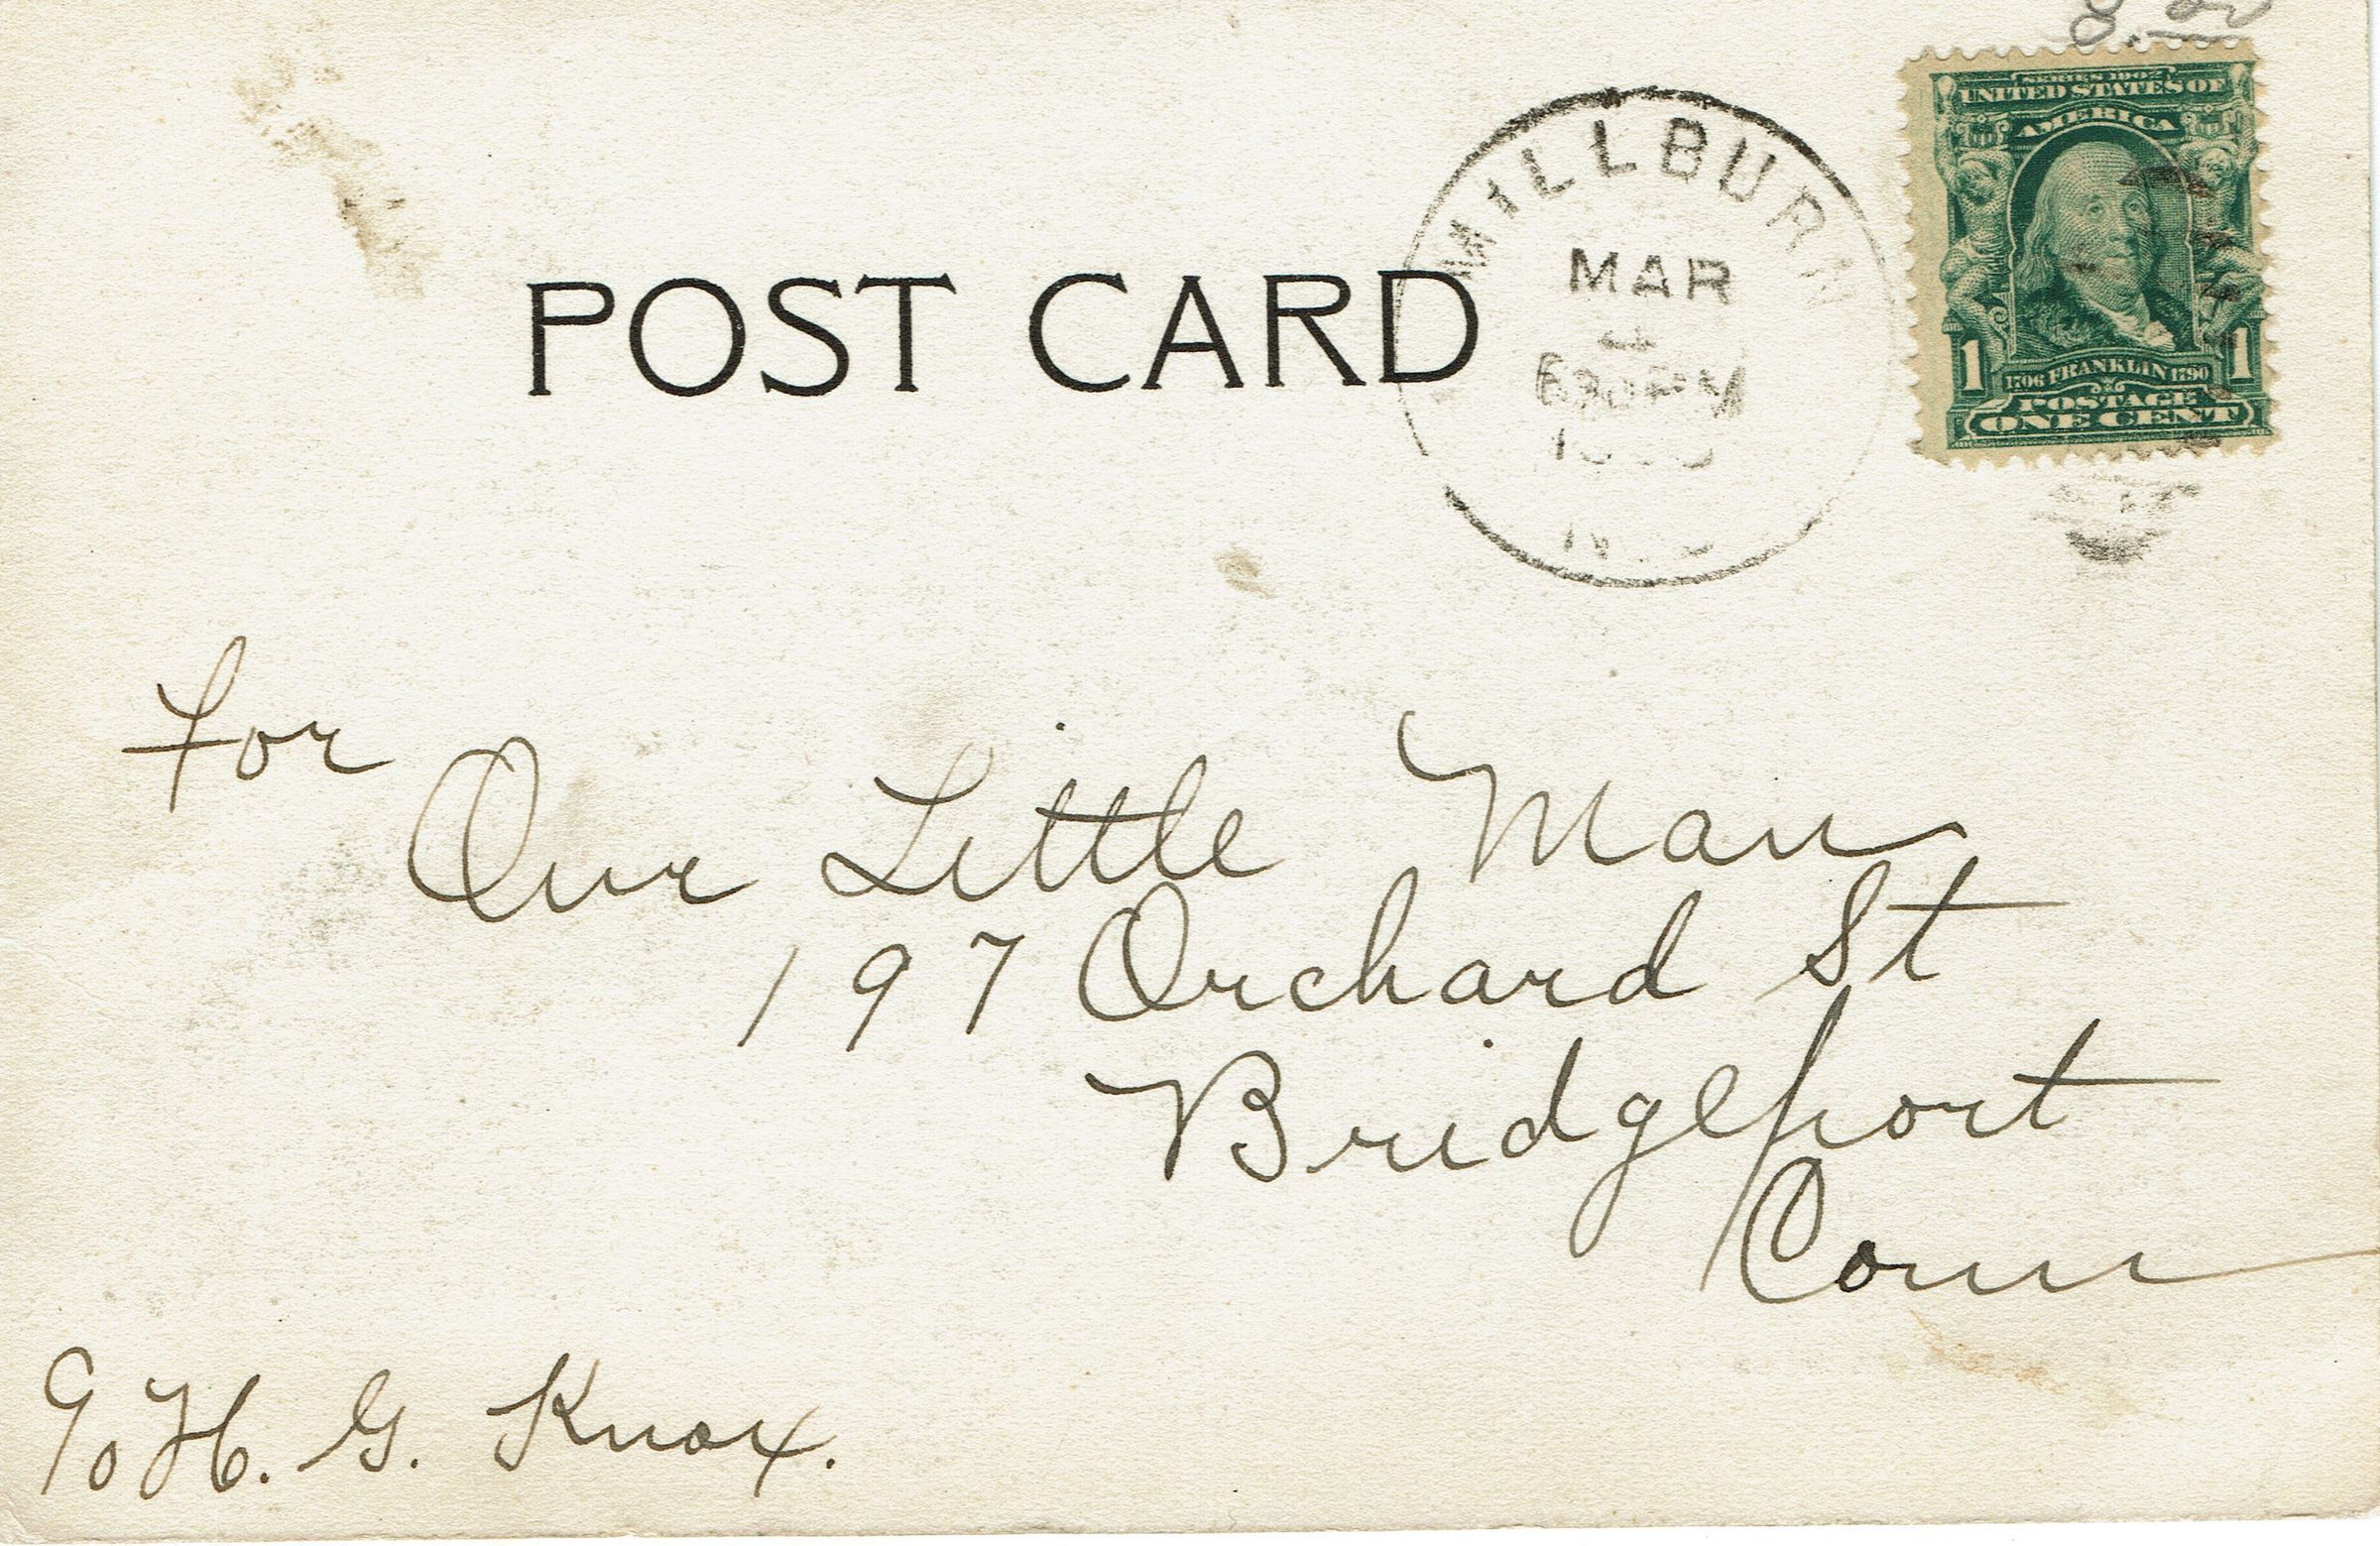 8.20
SERIES 1902
UNITED STATES OF
AMERICA
1 1
1706 FRANKLIN 1790
POSTAGE
ONE CENT
MILLBURN
MAR
4
630 PM
POST CARD
for
Our Little Man
197 Orchard St
Bridgeport
Conn
c/o H. G. Knox.